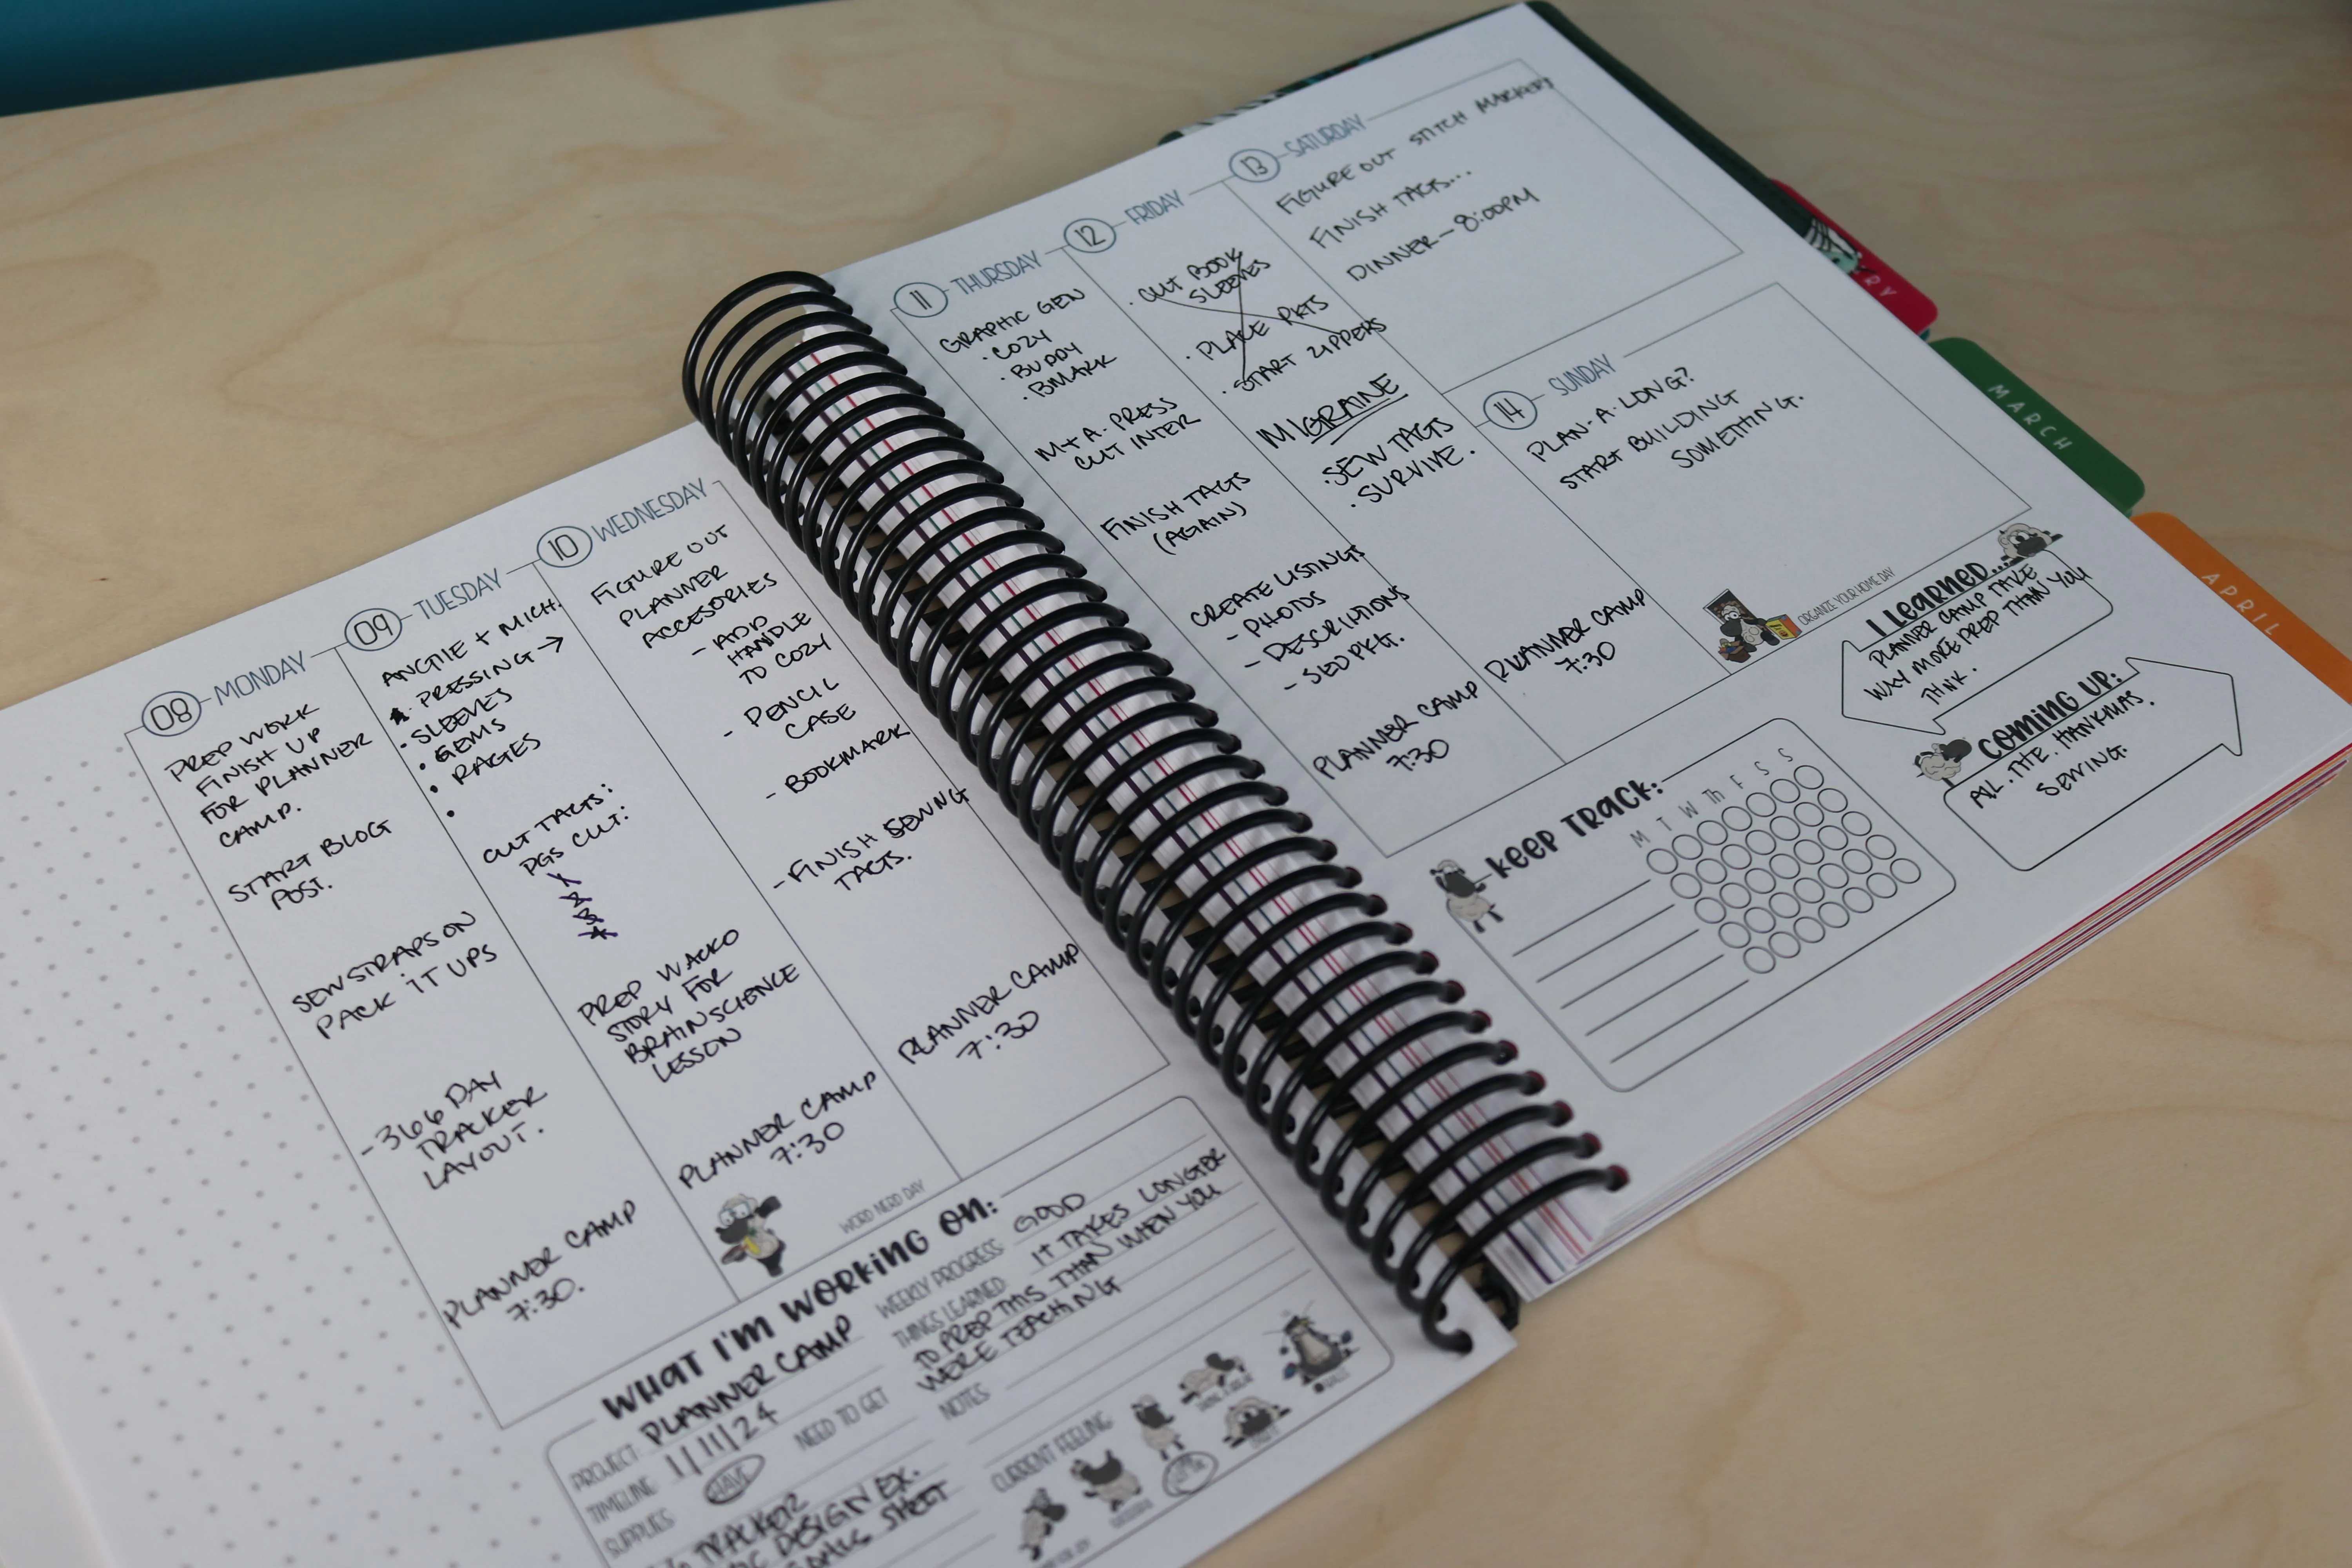 08 MONDAY
PREP WORK
FINISH UP
FOR PLANNER
CAMP.
START BLOG
POST.
SEW STRAPS ON
PACK IT UPS
- 366 DAY
TRACKER
LAYOUT.
PLANNER CAMP
7:30.
09 TUESDAY
ANGIE + MICH.
PRESSING →
• SLEEVES
• GEMS
• PAGES
•
CUT TAGS:
PGS CUT:
1
2
3
4
PREP WACKO
STORY FOR
BRAIN SCIENCE
LESSON
PLANNER CAMP
7:30
WORD NERD DAY
10 WEDNESDAY
FIGURE OUT
PLANNER
ACCESORIES
- ADD
HANDLE
TO COZY
- PENCIL
CASE
- BOOKMARK
- FINISH SEWING
TAGS.
PLANNER CAMP
7:30
WHAT I'M WORKING ON:
PROJECT: PLANNER CAMP
TIMELINE: 1/11/24
SUPPLIES: HAVE NEED TO GET
TRACKER
DESIGN EX.
SHEET
WEEKLY PROGRESS: GOOD
THINGS LEARNED: IT TAKES LONGER
TO PREP THIS THAN WHEN YOU
WERE TEACHING
NOTES
CURRENT FEELING
11 THURSDAY
GRAPHIC GEN
• COZY
• BUDDY
• BMARK
M + A - PRESS
CUT INTER
FINISH TAGS
(AGAIN)
CREATE LISTINGS
- PHOTOS
- DESCRIPTIONS
- SEO PKG.
PLANNER CAMP
7:30
12 FRIDAY
• CUT BOOK
SLEEVES
• PLACE PKTS
• START ZIPPERS
MIGRAINE
• SEW TAGS
• SURVIVE.
PLANNER CAMP
7:30
13 SATURDAY
FIGURE OUT STITCH MARKERS
FINISH TAGS...
DINNER - 8:00PM
14 SUNDAY
PLAN-A-LONG?
START BUILDING
SOMETHING.
ORGANIZE YOUR HOME DAY
I LEARNED...
PLANNER CAMP TAKE
WAY MORE PREP THAN YOU
THINK.
COMING UP:
ALL. THE. HANKMAS.
SEWING.
KEEP TRACK:
M T W Th F S S
RY
MARCH
APRIL